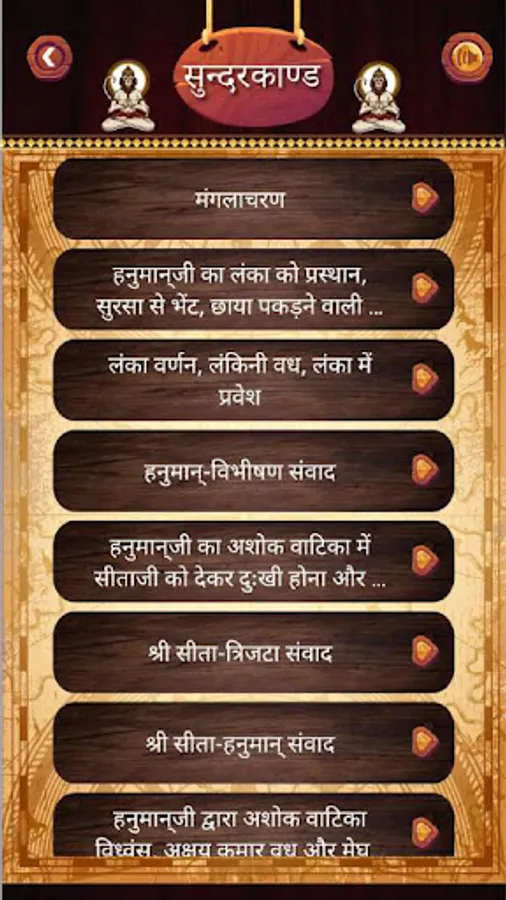 सुन्दरकाण्ड
मंगलाचरण
हनुमान्‌जी का लंका को प्रस्थान,
सुरसा से भेंट, छाया पकड़ने वाली ...
लंका वर्णन, लंकिनी वध, लंका में
प्रवेश
हनुमान्-विभीषण संवाद
हनुमान्‌जी का अशोक वाटिका में
सीताजी को देकर दुःखी होना और ...
श्री सीता-त्रिजटा संवाद
श्री सीता-हनुमान् संवाद
हनुमान्‌जी द्वारा अशोक वाटिका
विध्वंस, अक्षय कुमार वध और मेघ